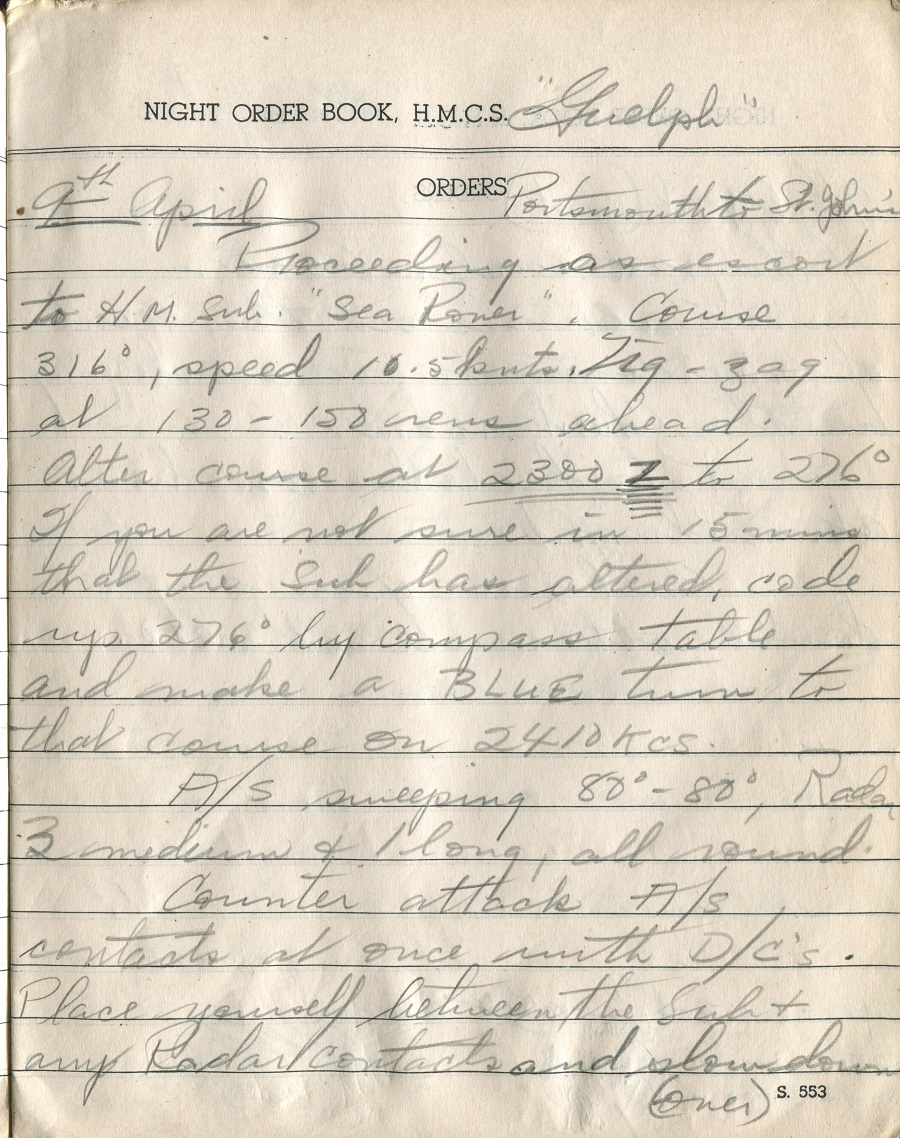 NIGHT ORDER BOOK, H.M.C.S. "Guelph"
ORDERS
9th April Portsmouth to St. John's
Proceeding as escort
to H.M. Sub. "Sea Rover". Course
316°, speed 10.5 knts. Zig-zag
at 130 - 150 revs ahead.
Alter course at 2300 Z to 276°
If you are not sure in 15 mins
that the Sub has altered, code
up 276° by compass table
and make a BLUE turn to
that course on 2410 Kcs.
A/S sweeping 80° - 80°, Radar
3 medium & 1 long, all round.
Counter attack A/S
contacts at once with D/C's.
Place yourself between the Sub +
any Radar contacts and slow down
(over)
S. 553